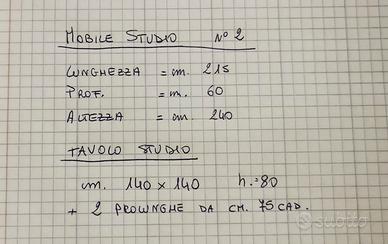 MOBILE STUDIO N° 2
LUNGHEZZA = cm. 215
PROF. = m. 60
ALTEZZA = cm. 240
TAVOLO STUDIO
cm. 140 x 140 h.=80
+ 2 PROLUNGHE DA CM. 75 CAD.
subito